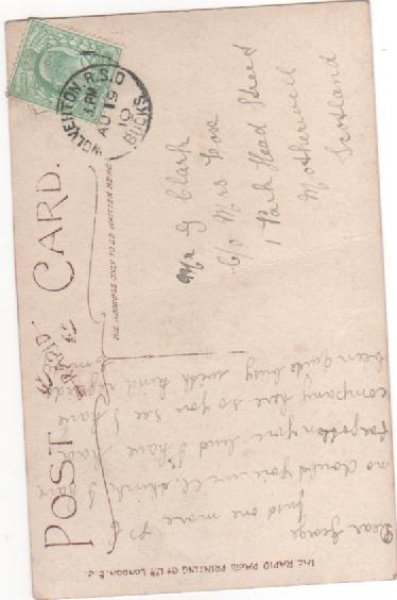 POST CARD.
THE ADDRESS ONLY TO BE WRITTEN HERE
WOLVERTON R.S.O
PM
AU 19
10
BUCKS
Mr G Clark
C/o Mrs
1 Park Head Street
Motherwell
Scotland
Dear George
Just one more P.C
no doubt you will think I have
forgotten you but I have had
company here so you see I have
been quite busy with kind regards
from
THE RAPID PHOTO PRINTING Co LTD LONDON. E.C.